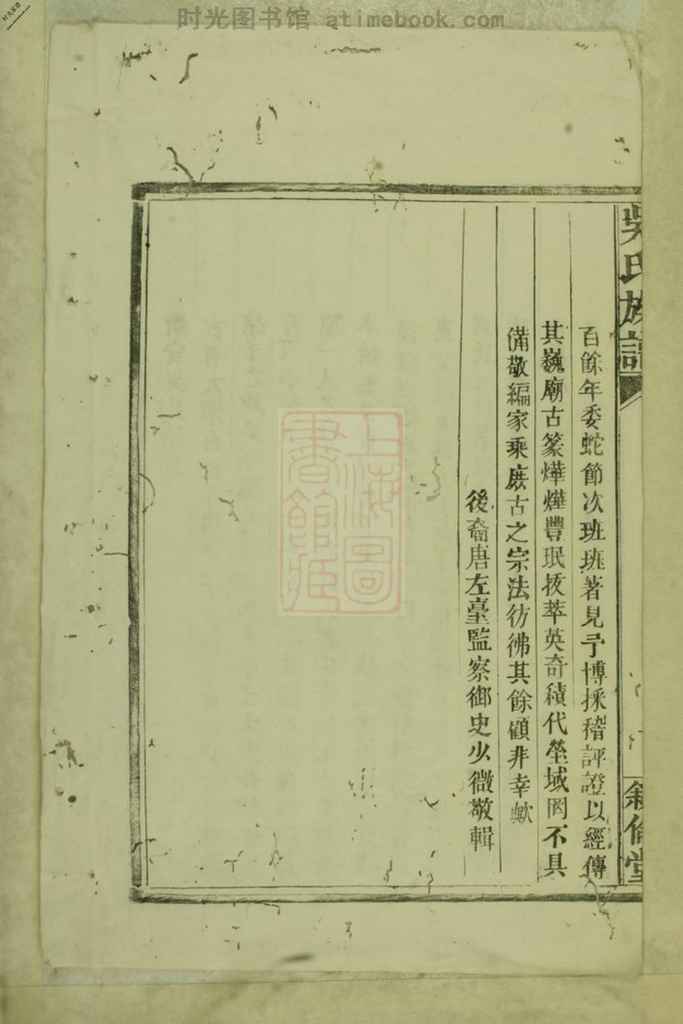 时光图书馆 atimebook.com
吳氏族譜
敘倫堂
百餘年委蛇節次班班著見予博採稽評證以經傳
其巍廟古篆燁燁豐珉拔萃英奇積代塋域罔不具
備敬編家乘庶古之宗法彷彿其餘顧非幸歟
後裔唐左臺監察御史少微敬輯
上海圖書館藏